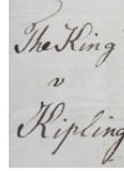 The King
v
Kipling